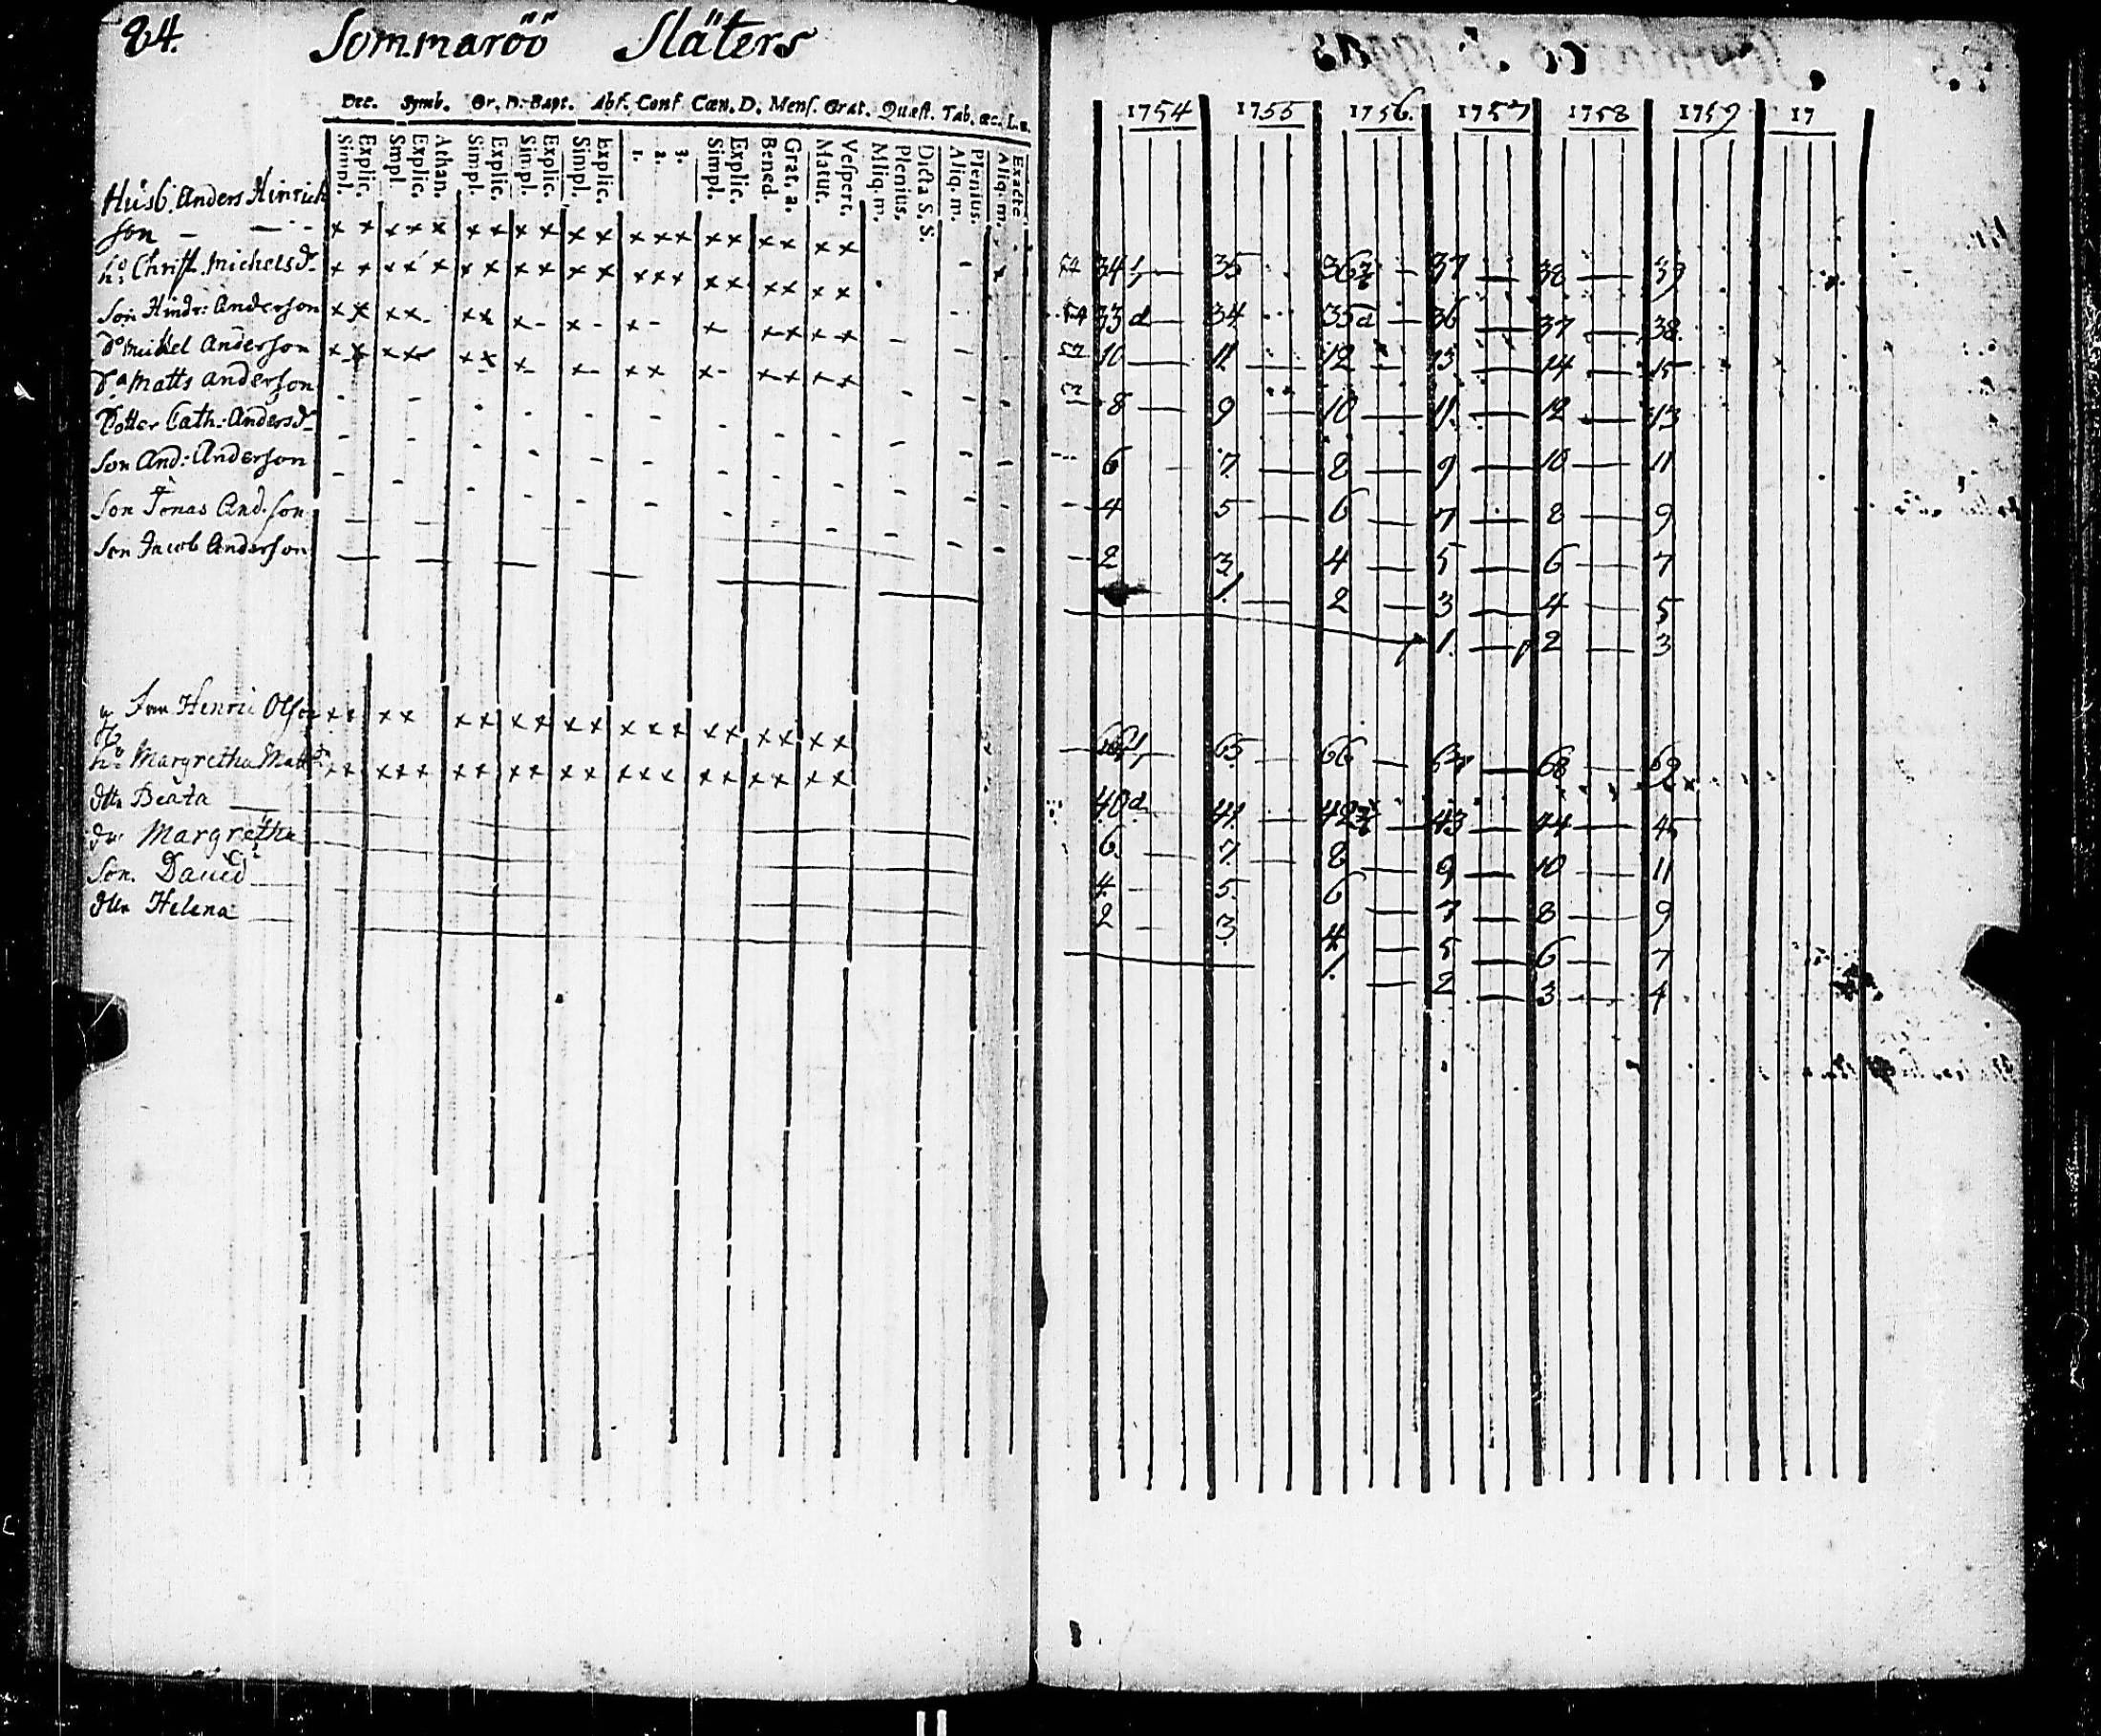 84. Sommaröö Släters
Dec. Symb. Or. D. Bapt. Abs. Conf Cœn. D. Mens. Grat. Quæst. Tab. œc. L. a.
Simpl. Explic. Smpl Explic. Athan. Simpl. Explic. Simpl. Explic. Simpl. Explic. 1. 2. 3. Simpl. Explic. Bened. Grat. a. Matut. Vespert. Mliq. m. Plenius. Dicta S. S. Aliq. m. Plenius. Aliq. m. Exacte
Husb. Anders Hinrich
son - - - x x x x x x x x x x x x x x x x x x x x
h: Christ. Michelsd. x x x x x x x x x x x x x x x x x x x x
Son Hindr: Anderson x x x x - x x x - x - x - x - x x x x
Do Mikel Anderson x x x x x x x - x - x x x - x x x x
Do Matts Anderson
Dotter Cath: Andersd.
Son And: Anderson
Son Jonas And.son
Son Jacob Anderson
Henric Olson x x x x x x x x x x x x x x x x x x x
h: Margretha Matsd. x x x x x x x x x x x x x x x x x x x x
dtr Beata
Margretha
Son. David
dtr Helena
1754 1755 1756. 1757 1758 1759 17
54 34 35 36 37 38 39
54 33 d 34 35 d 36 37 38
10 11 12 13 14 15
8 9 10 11 12 13
6 7 8 9 10 11
4 5 6 7 8 9
2 3 4 5 6 7
1 2 3 4 5
1 2 3
65 66 67 68 69
40 d 41 42 43 44 45
6 7 8 9 10 11
4 5 6 7 8 9
2 3 4 5 6 7
1 2 3 4